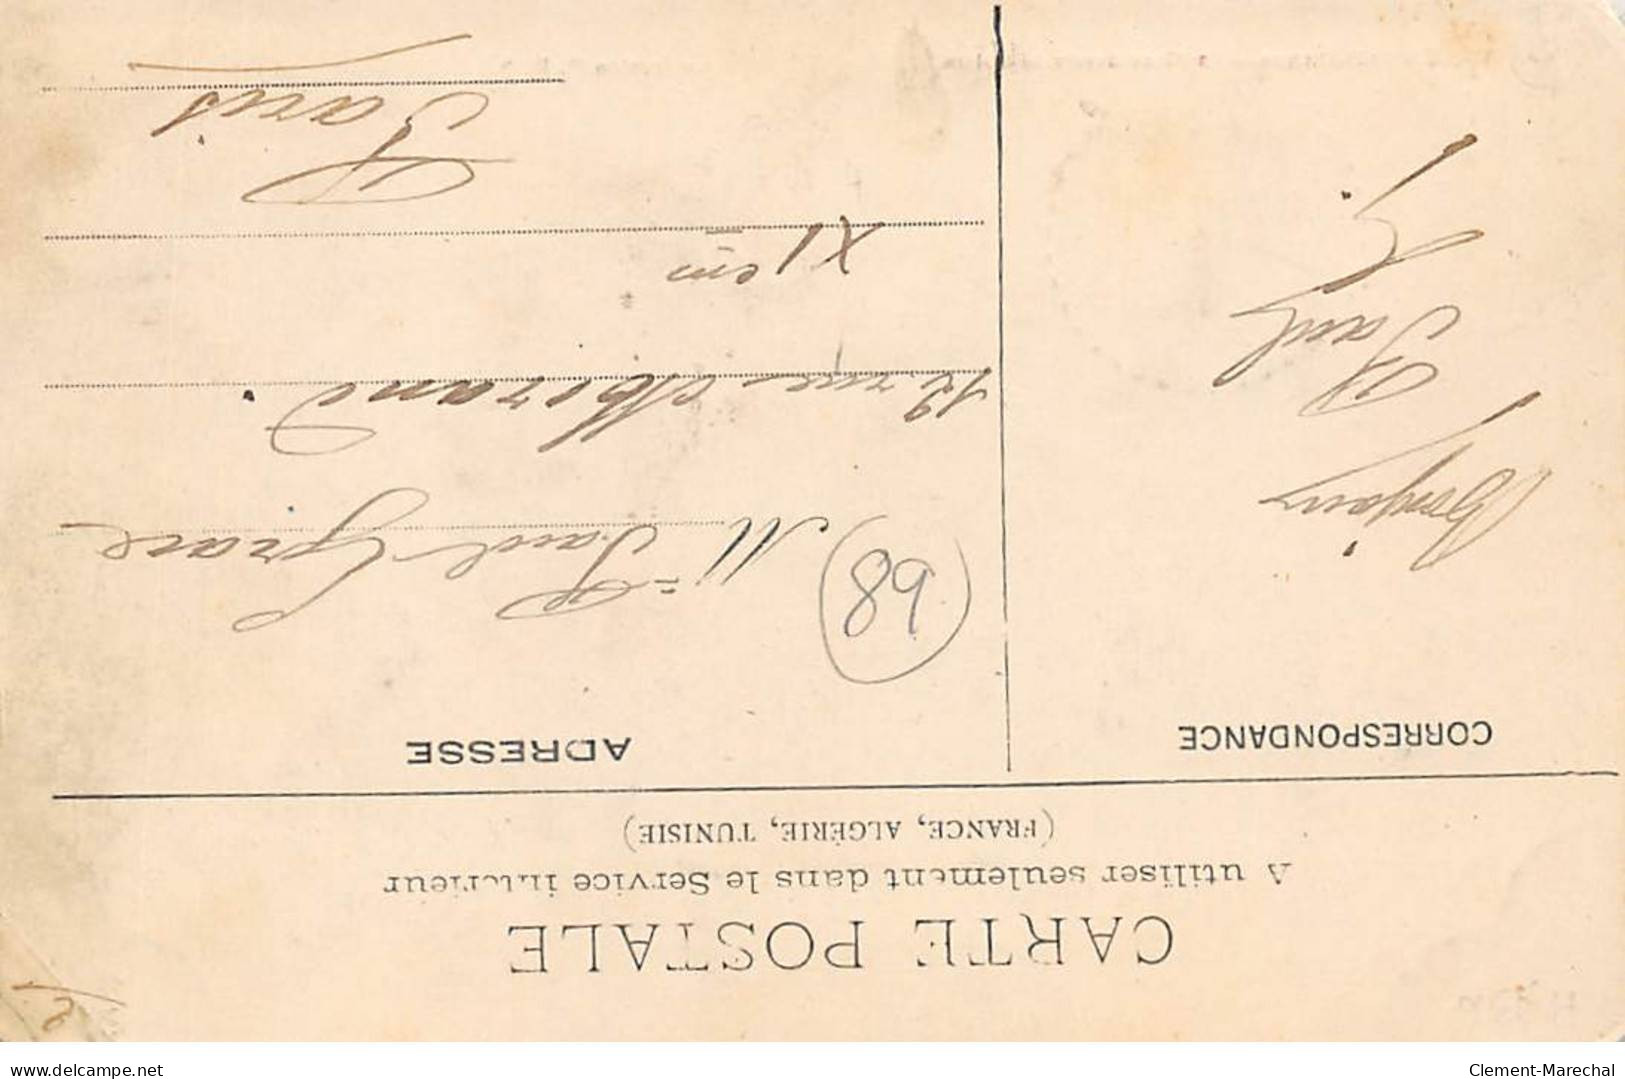 CARTE POSTALE
A utiliser seulement dans le Service intérieur
(FRANCE, ALGÉRIE, TUNISIE)
CORRESPONDANCE
ADRESSE
Bonjour
Paul
68
M Paul Grace
12 rue Morand.
XI em
Paris
delcampe.net
Clement-Marechal